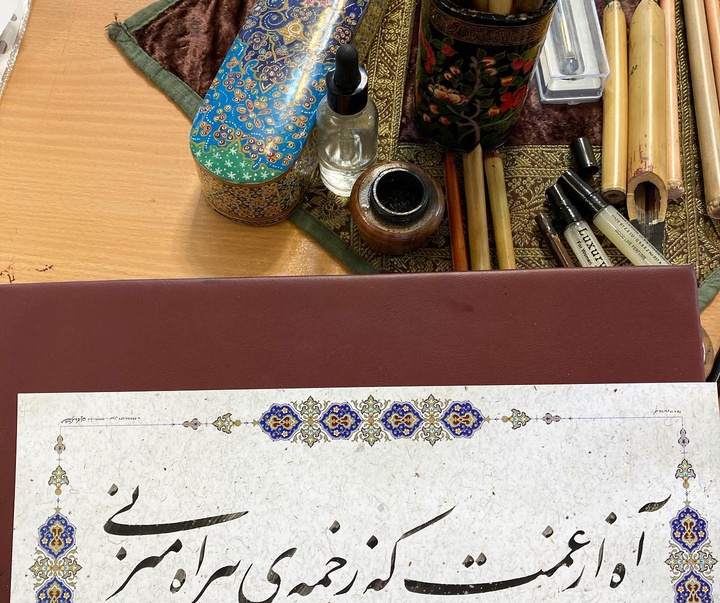 Luxury
آه از غمت که زخمه‌ی بی راه میزنی